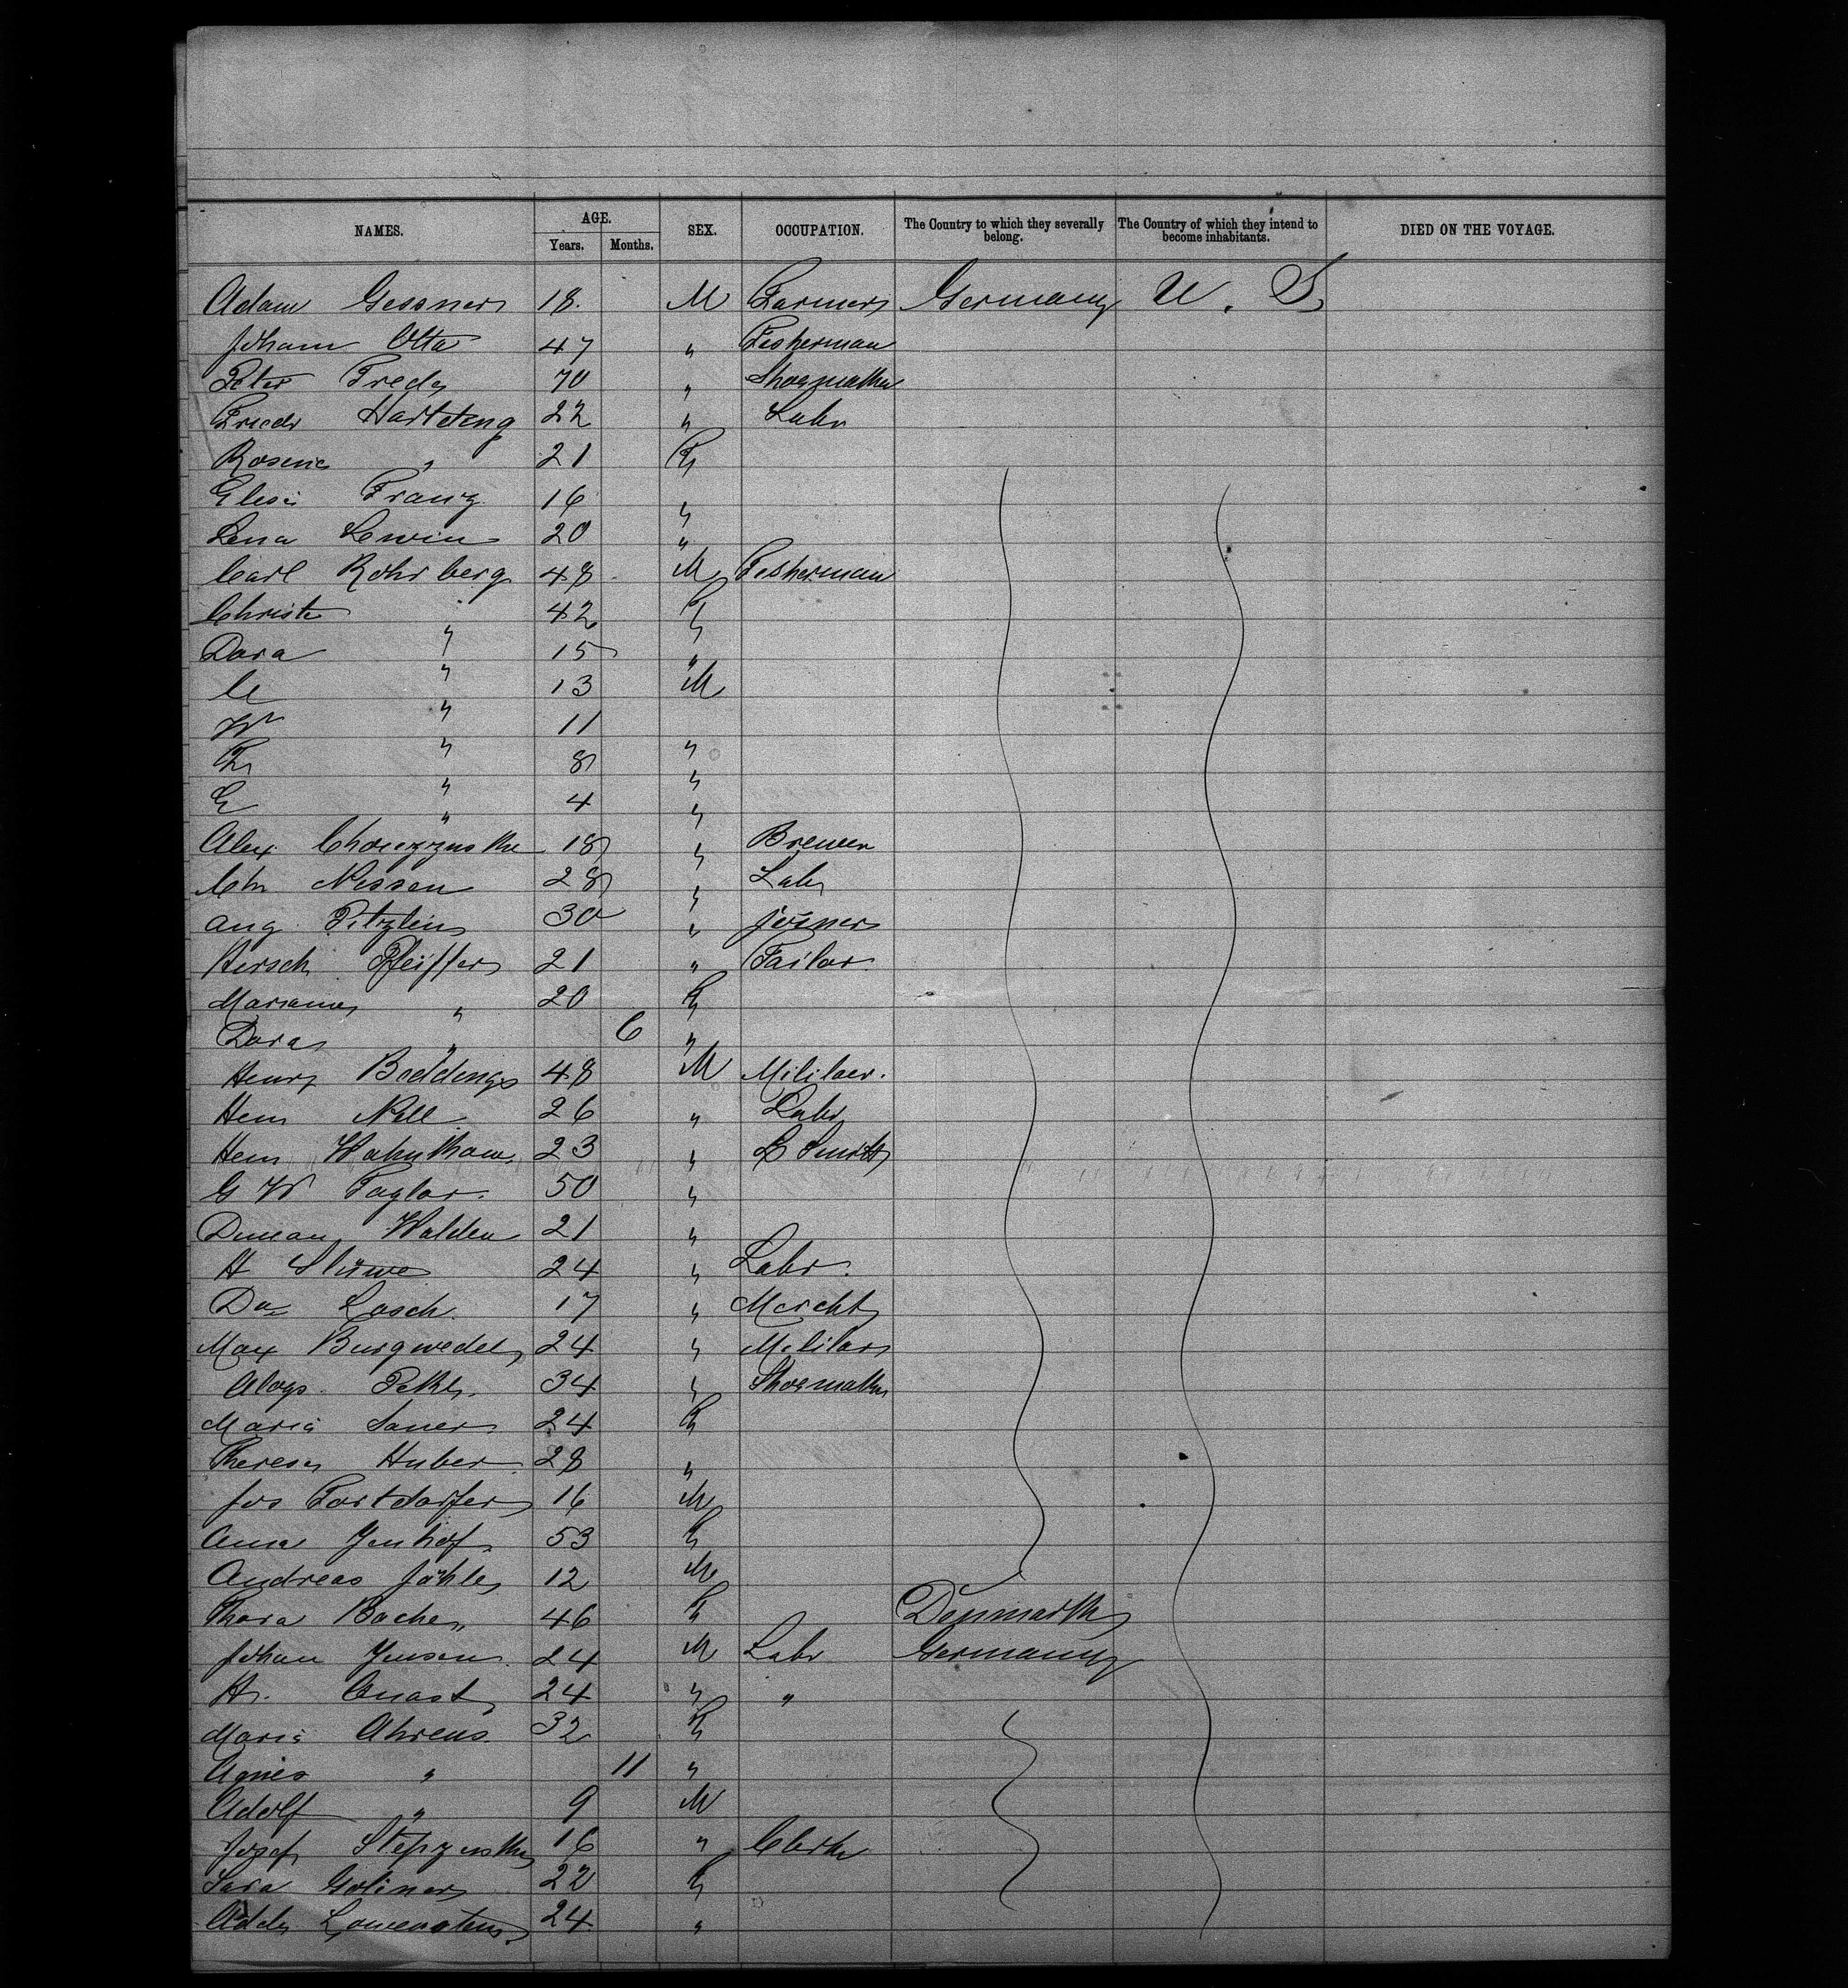 NAMES. AGE. Years. Months. SEX. OCCUPATION. The Country to which they severally belong. The Country of which they intend to become inhabitants. DIED ON THE VOYAGE.
Adam Gessner 18 M Farmer Germany U. S.
Johann Otta 47 " Fisherman
Peter Fredy 70 " Shoemaker
Friedr 22 " Labr
Rosine " 21 F
Elise Franz 16 "
Lena Lewin 20 "
Carl Rohrberg 48 M Fisherman
Christe " 42 F
Dora " 15 "
C " 13 M
W " 11 "
Fr " 8 "
E " 4 "
Alex 18 " Brewer
Chr Nissen 28 " Labr
Aug 30 " Joiner
Hirsch Pfeiffer 21 " Tailor
Marianne " 20 F
Dora " 6 "
Henry Beddings 48 M Militaer.
Hein Nell 26 " Labr
Hein 23 " B Smith
G W Taylor 50 "
Duncan Walden 21 "
H Stüwe 24 " Labr.
Da Lasch 17 " Mercht
Max Burgwedel 24 " Militar
Aloys 34 " Shoemaker
Maria Sauer 24 F
Theresa Huber 28 "
Jos Forstdorfer 16 M
Anna 53 F
Andreas 12 M
Thora Bache 46 F Denmark
Johan Jensen 24 M Labr Germany
H. 24 " "
Maria Ahrens 32 F
Agnes " 11 "
Adolf " 9 M
Josef 16 " Clerk
Sara Goliner 22 F
24 "